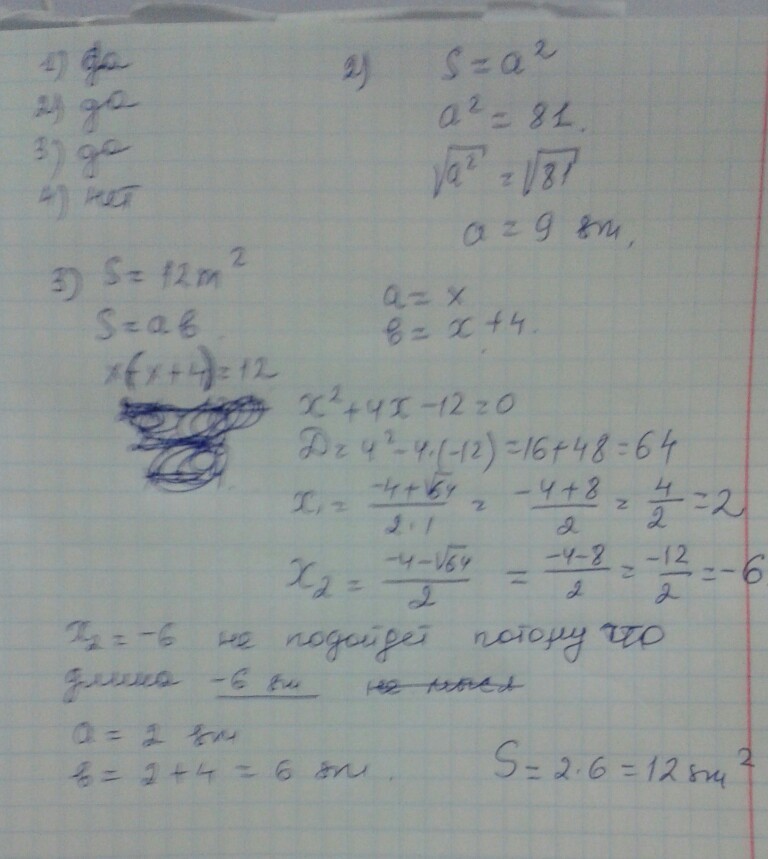 1) да
2) да
3) да
4) нет
2) S = a²
a² = 81.
√a² = √81
a = 9 см.
3) S = 12 m²
S = a в
a = x
в = x + 4.
x(x+4) = 12
x² + 4x - 12 = 0
D = 4² - 4·(-12) = 16 + 48 = 64
x₁ = (-4+√64)/(2·1) = (-4+8)/2 = 4/2 = 2
x₂ = (-4-√64)/2 = (-4-8)/2 = -12/2 = -6
x₂ = -6 не подойдет потому что
длина -6 см
a = 2 см
в = 2 + 4 = 6 см.
S = 2·6 = 12 см²